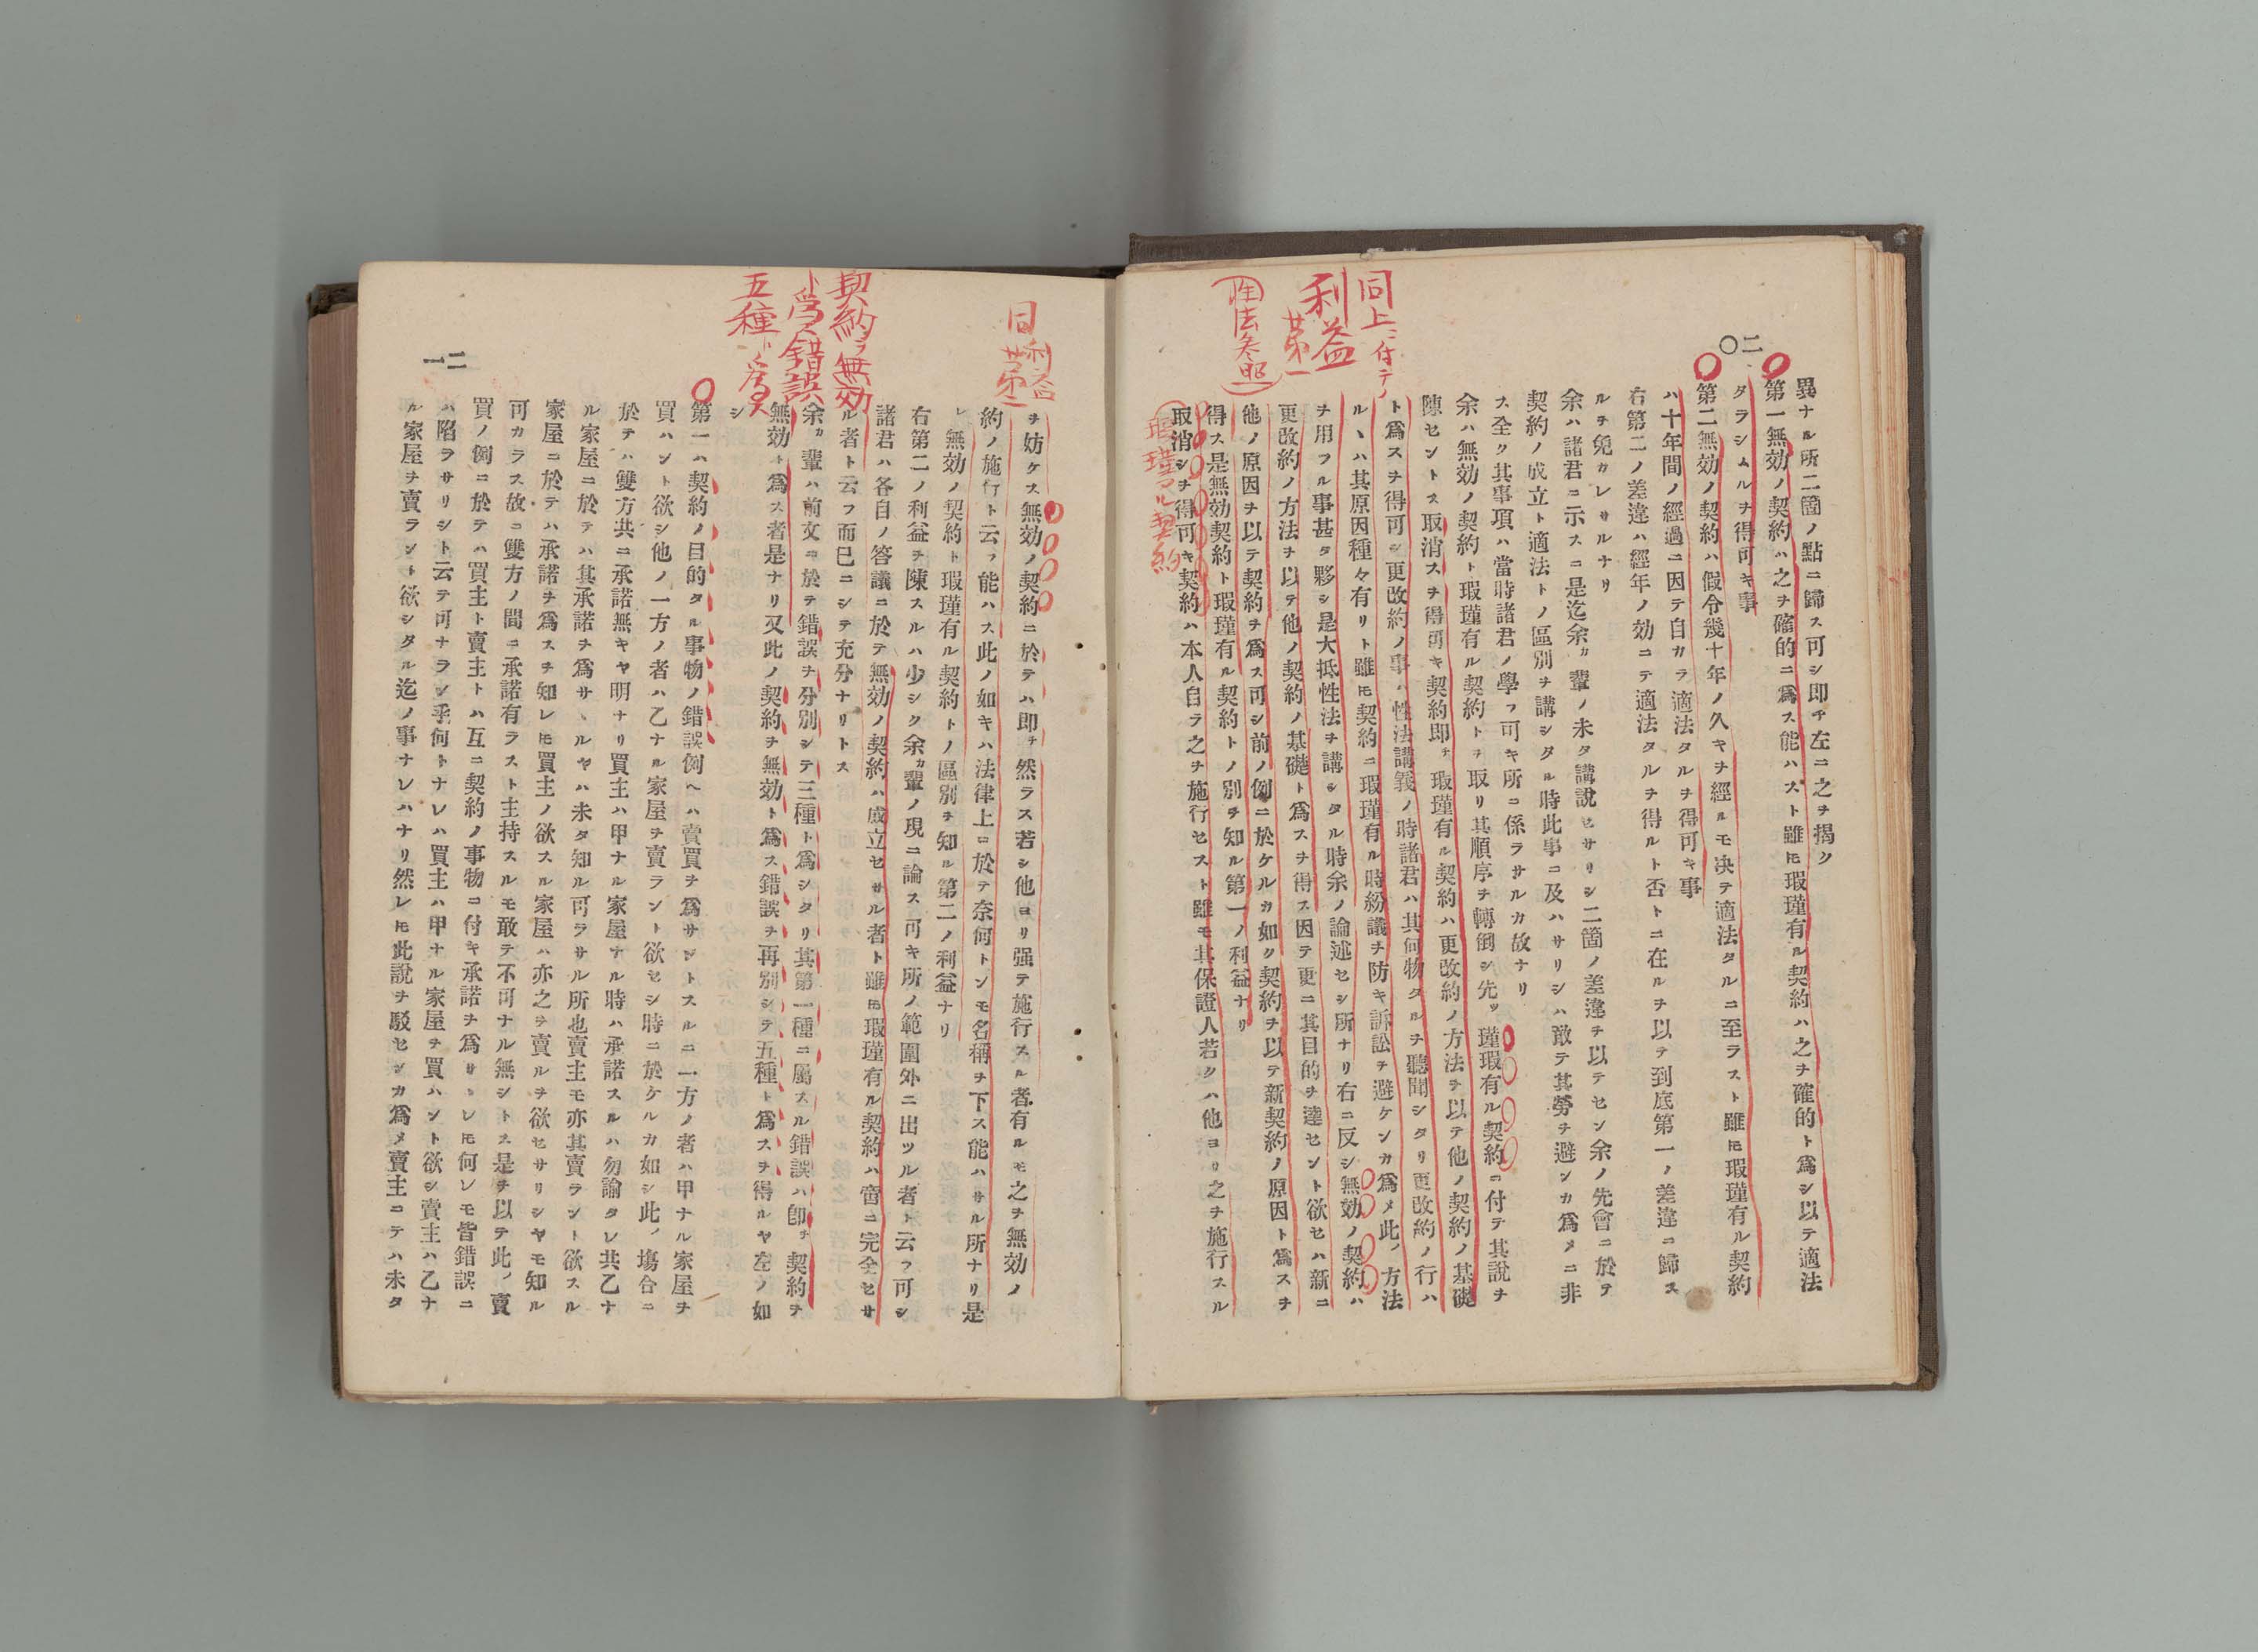 二〇
同上ニ付テノ
利益
第一
性法参照
異ナル所二箇ノ點ニ歸ス可シ即チ左ニ之ヲ揭ク
第一無効ノ契約ハ之ヲ確的ニ爲ス能ハスト雖𪜈瑕瑾有ル契約ハ之ヲ確的ト爲シ以テ適法
タラシムルヲ得可キ事
第二無効ノ契約ハ假令幾十年ノ久キヲ經ルモ决テ適法タルニ至ラスト雖𪜈瑕瑾有ル契約
ハ十年間ノ經過ニ因テ自カラ適法タルヲ得可キ事
右第二ノ差違ハ經年ノ効ニテ適法タルヲ得ルト否トニ在ルヲ以テ到底第一ノ差違ニ歸ス
ルヲ免カレサルナリ
余ハ諸君ニ示スニ是迄余カ輩ノ未タ講說セサリシ二箇ノ差違ヲ以テセン余ノ先會ニ於テ
契約ノ成立ト適法トノ區別ヲ講シタル時此事ニ及ハサリシハ敢テ其勞ヲ避ンカ爲メニ非
ス全ク其事項ハ當時諸君ノ學フ可キ所ニ係ラサルカ故ナリ
余ハ無効ノ契約ト瑕瑾有ル契約トヲ取リ其順序ヲ轉倒シ先ツ瑾瑕有ル契約ニ付テ其說ヲ
陳セントス取消スヲ得可キ契約即チ瑕瑾有ル契約ハ更改約ノ方法ヲ以テ他ノ契約ノ基礎
ト爲スヲ得可シ更改約ノ事ハ性法講義ノ時諸君ハ其何物タルヲ聽聞シタリ更改約ノ行ハ
ルヽハ其原因種々有リト雖𪜈契約ニ瑕瑾有ル時紛議ヲ防キ訴訟ヲ避ケンカ爲メ此ノ方法
ヲ用フル事甚タ夥シ是大抵性法ヲ講シタル時余ノ論述セシ所ナリ右ニ反シ無効ノ契約ハ
更改約ノ方法ヲ以テ他ノ契約ノ基礎ト爲スヲ得ス因テ更ニ其目的ヲ達セント欲セハ新ニ
他ノ原因ヲ以テ契約ヲ爲ス可シ前ノ例ニ於ケルカ如ク契約ヲ以テ新契約ノ原因ト爲スヲ
得ス是無効契約ト瑕瑾有ル契約トノ別ヲ知ル第一ノ利益ナリ
取消シヲ得可キ契約ハ本人自ラ之ヲ施行セスト雖モ其保證人若クハ他ヨリ之ヲ施行スル
瑕瑾アル契約
同利益
第二
契約ヲ無効
ト爲ス錯誤
五種ト爲ス
ヲ妨ケス無効ノ契約ニ於テハ即チ然ラス若シ他ヨリ强テ施行スル者有ルモ之ヲ無効ノ
約ノ施行ト云フ能ハス此ノ如キハ法律上ニ於テ奈何トンモ名稱ヲ下ス能ハサル所ナリ是
レ無効ノ契約ト瑕瑾有ル契約トノ區別ヲ知ル第二ノ利益ナリ
右第二ノ利益ヲ陳スルハ少シク余カ輩ノ現ニ論ス可キ所ノ範圍外ニ出ツル者ト云フ可シ
諸君ハ各自ノ答議ニ於テ無効ノ契約ハ成立セサル者ト雖𪜈瑕瑾有ル契約ハ啻ニ完全セサ
ル者ト云フ而已ニシテ充分ナリトス
余カ輩ハ前文ニ於テ錯誤ヲ分別シテ三種ト爲シタリ其第一種ニ屬スル錯誤ハ卽チ契約ヲ
無効ト爲ス者是ナリ又此ノ契約ヲ無効ト爲ス錯誤ヲ再別シテ五種ト爲スヲ得ルヤ左ノ如
シ
第一ハ契約ノ目的タル事物ノ錯誤例ヘハ賣買ヲ爲サントスルニ一方ノ者ハ甲ナル家屋ヲ
買ハント欲シ他ノ一方ノ者ハ乙ナル家屋ヲ賣ラント欲セシ時ニ於ケルカ如シ此ノ塲合ニ
於テハ雙方共ニ承諾無キヤ明ナリ買主ハ甲ナル家屋ナル時ハ承諾スルハ勿論タレ共乙ナ
ル家屋ニ於テハ其承諾ヲ爲サヽルヤハ未タ知ル可ラサル所也賣主モ亦其賣ラント欲スル
家屋ニ於テハ承諾ヲ爲スヲ知レ𪜈買主ノ欲スル家屋ハ亦之ヲ賣ルヲ欲セサリシヤモ知ル
可カラス故ニ雙方ノ間ニ承諾有ラスト主持スルモ敢テ不可ナル無シトス是ヲ以テ此ノ賣
買ノ例ニ於テハ買主ト賣主トハ互ニ契約ノ事物ニ付キ承諾ヲ爲サヽレ𪜈何レモ皆錯誤ニ
ハ陷ラサリシト云テ可ナランヤ何トナレハ買主ハ甲ナル家屋ヲ買ハント欲シ賣主ハ乙ナ
ル家屋ヲ賣ラント欲シタル迄ノ事ナレハナリ然レ𪜈此說ヲ駁センカ爲メ賣主ニテハ未タ
二一